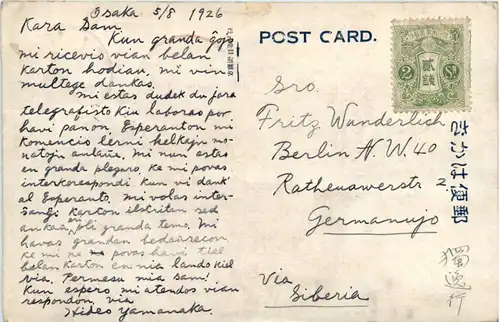 Osaka 5/8 1926
Kara Sam
Kun granda ĝojo
mi ricevis vian belan
karton hodiaŭ, mi vin
multege dankas.
mi estas dudek du jara
telegrafisto kiu laboras por
havi panon. Esperanton mi
komencis lerni kelkajn mo-
natojn antaŭe. Mi nun estas
en granda plezuro, ke mi povas
interkorespondi kun vi dank'
al Esperanto. Mi volas inter-
ŝanĝi karton ilustritan sed
ankaŭ pli granda temo. Mi
havas grandan bedaŭrecon
ke mi ne povas havi tiel
belan karton en nia lando kiel
via. Permesu mia Sam!
Kun espero mi atendos vian
respondon, via
Hideo Yamanaka
POST CARD.
Sro.
Fritz Wunderlich
Berlin N.W. 40
Rathenowerstr 2
Germanujo
Via
Siberia
きかは便郵
獨逸行
貳錢
2